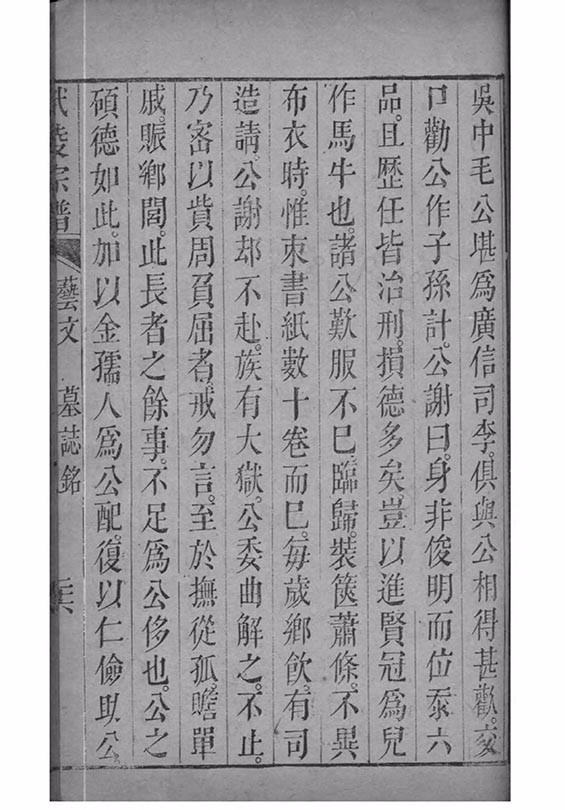 吳中毛公堪為廣信司李。俱與公相得甚歡。交
口勸公作子孫計。公謝曰。身非俊明而位忝六
品。且歷任皆治刑。損德多矣。豈以進賢冠為兒
作馬牛也。諸公歎服不已。臨歸。裝篋蕭條。不異
布衣時。惟束書紙數十卷而已。每歲鄉飲。有司
造請。公謝却不赴。族有大獄。公委曲解之。不止。
乃密以貲周負屈者。戒勿言。至於撫從孤。贍單
戚。賑鄉閭。此長者之餘事。不足為公侈也。公之
碩德如此。加以金孺人為公配。復以仁儉助公
武陵宗譜 藝文 墓誌銘